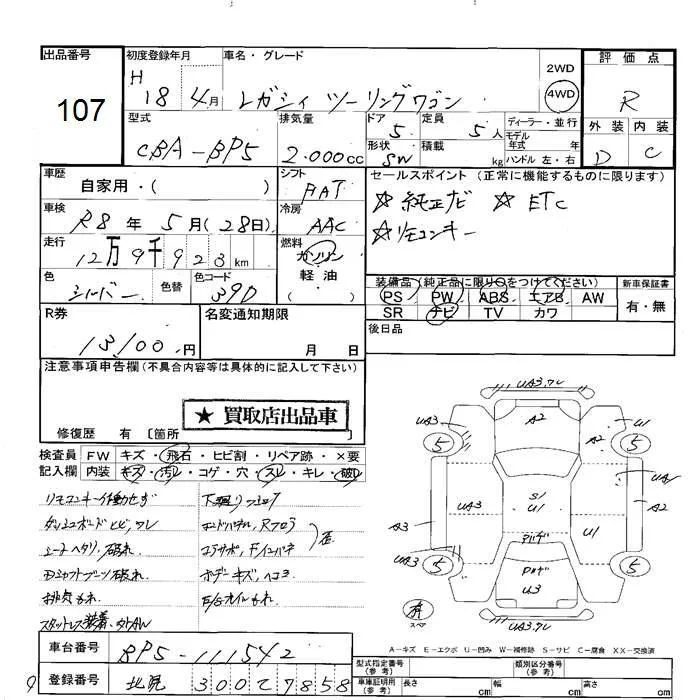 出品番号 107
初度登録年月 H 18年 4月
車名・グレード レガシィ ツーリングワゴン
2WD 4WD
評価点 R
外装 D 内装 C
型式 CBA-BP5
排気量 2.000cc
ドア 5 定員 5人
形状 SW 積載 kg
ディーラー・並行
モデル年式 年
ハンドル 左・右
車歴 自家用・( )
シフト FAT
セールスポイント (正常に機能するものに限ります)
☆純正ナビ ☆ETC
☆リモコンキー
車検 R8年 5月(28日)
冷房 AAC
走行 12万9千923km
燃料 ガソリン 軽油 ( )
色 シルバー 色替 色コード 39D
装備品(純正品に限り○をつけてください)
PS PW ABS エアB AW
SR ナビ TV カワ
新車保証書 有・無
R券 13100円
名変通知期限 月 日
後日品
注意事項申告欄(不具合内容等は具体的に記入して下さい)
★ 買取店出品車
修復歴 有 〔箇所
検査員記入欄
FW キズ・飛石・ヒビ割・リペア跡・×要
内装 キズ・汚れ・コゲ・穴・スレ・キレ・破れ
リモコンキー作動せず
ダッシュボードヒビ、ワレ
シートヘタリ、破れ
Dシャフトブーツ破れ
排気もれ
スタットレス装着、社外AW
下廻りフロア
エンドパネル、Rフロア
コアサポ、Fインパネ 歪
ボデーキズ、ヘコミ
E/Gオイルもれ
UA3.ワレ
A2
UA3 U1
5 A2 5
UA3 S1 U1 U1 A2
A3
アリサゲ
UA3
5 U3 5
有 スペア
UA3.ワレ
A-キズ E-エクボ U-凹み W-補修跡 S-サビ C-腐食 XX-交換済
車台番号 BP5-111542
登録番号 300 て 7858
型式指定番号(参考) 類別区分番号(参考)
車庫証明用(参考) 長さ cm 幅 cm 高さ cm